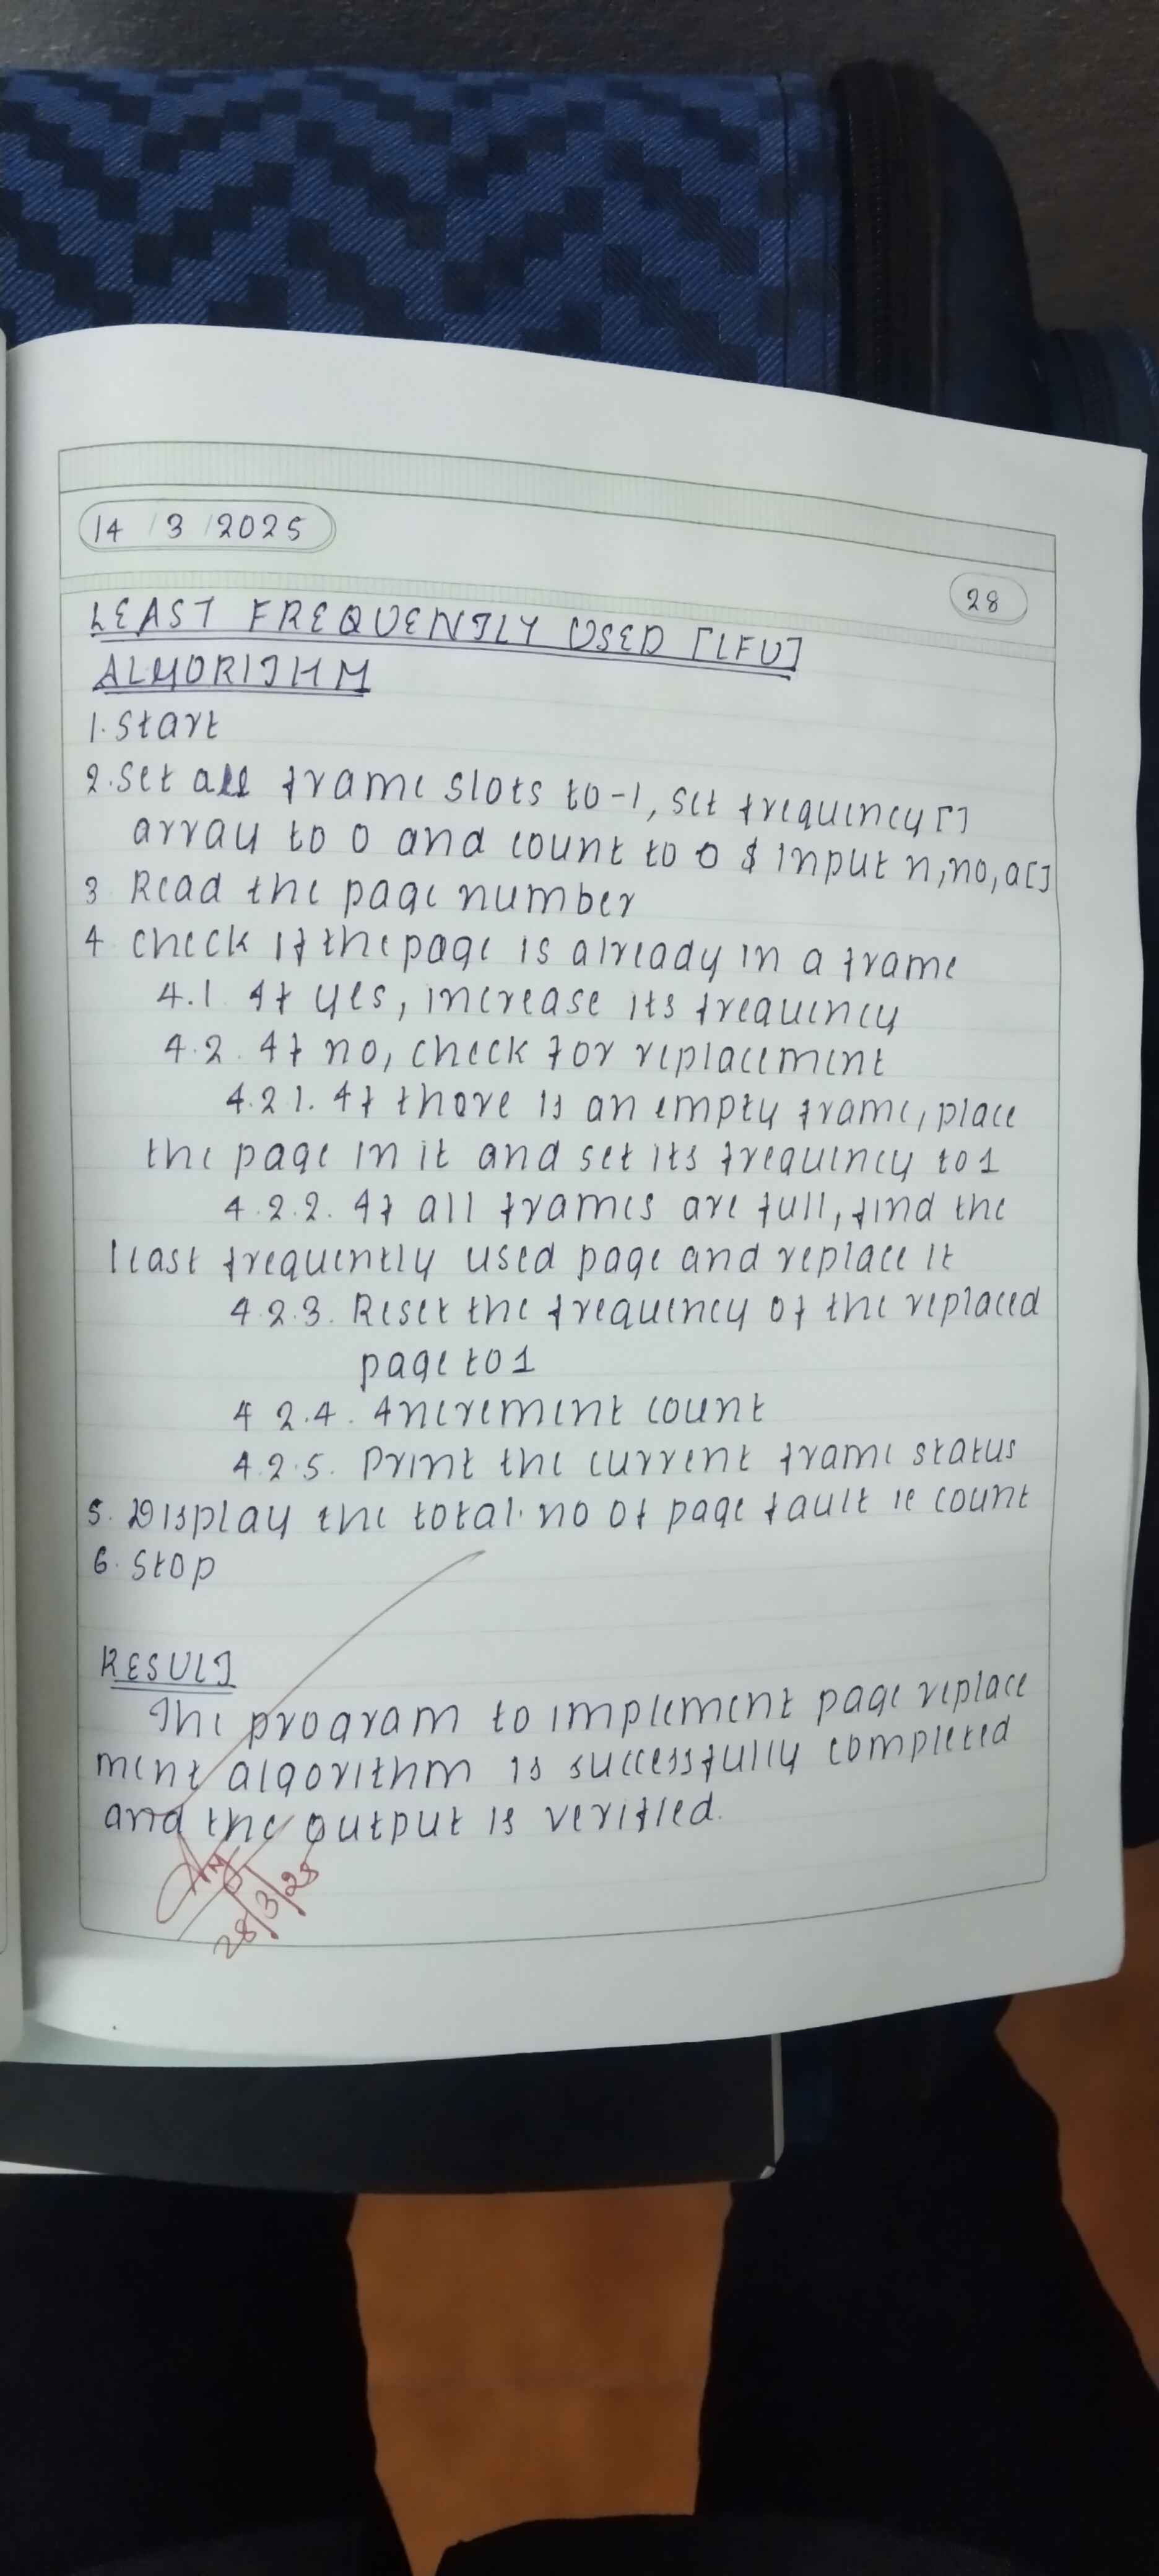 14 / 3 / 2025
28
LEAST FREQUENTLY USED [LFU]
ALGORITHM
1. Start
2. Set all frame slots to -1, set frequency[]
array to 0 and count to 0 & input n, no, a[]
3 Read the page number
4 check if the page is already in a frame
4.1 If yes, increase its frequency
4.2. If no, check for replacement
4.2.1. If there is an empty frame, place
the page in it and set its frequency to 1
4.2.2. If all frames are full, find the
least frequently used page and replace it
4.2.3. Reset the frequency of the replaced
page to 1
4 2.4. Increment count
4.2.5. Print the current frame status
5. Display the total. no of page fault ie count
6. Stop
RESULT
The program to implement page replace
ment algorithm is successfully completed
and the output is verified.
28/3/25